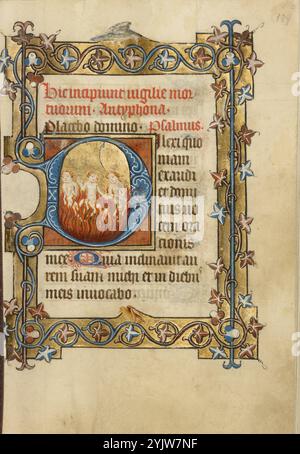 Hic incipiunt vigilie mor
tuorum · Antyphona ·
Placebo domino · Psalmus ·
Dilexi quo
niam
exaudi
et domi
nus uo
cem ora
cionis
mee Quia inclinauit au
rem suam michi et in diebus
meis inuocabo ·
alamy
Image ID: 2YJW7NF
www.alamy.com